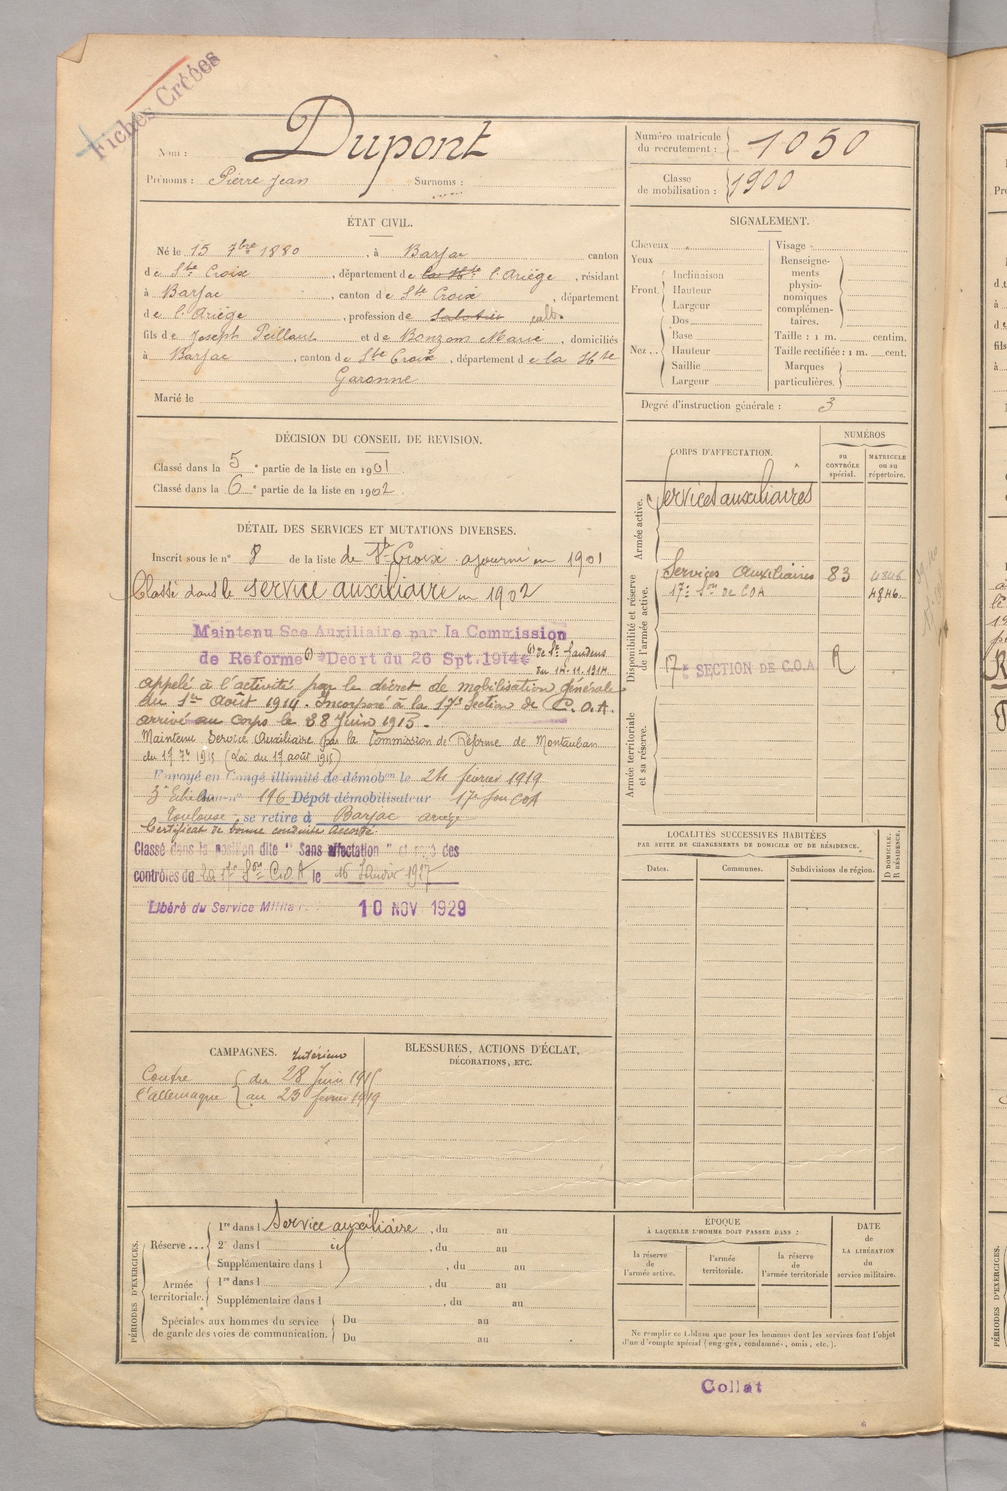 Fiches Créées
Nom : Dupont
Prénoms : Pierre Jean Surnoms :
Numéro matricule du recrutement : 1050
Classe de mobilisation : 1900
ÉTAT CIVIL.
Né le 15 7bre 1880 , à Barjac canton
de Ste Croix , département de la Hte l'Ariège , résidant
à Barjac , canton de Ste Croix , département
de l'Ariège , profession de Sabotier cult.
fils de Joseph Peillant et de Bonzom Marie , domiciliés
à Barjac , canton de Ste Croix , département de la Hte
Garonne
Marié le
SIGNALEMENT.
Cheveux
Yeux
Front. Inclinaison
Hauteur
Largeur
Nez .. Dos
Base
Hauteur
Saillie
Largeur
Visage
Renseigne-
ments
physio-
nomiques
complémen-
taires.
Taille : 1 m. centim.
Taille rectifiée : 1 m. cent.
Marques
particulières.
Degré d'instruction générale : 3
DÉCISION DU CONSEIL DE REVISION.
Classé dans la 5e partie de la liste en 1901.
Classé dans la 6e partie de la liste en 1902.
DÉTAIL DES SERVICES ET MUTATIONS DIVERSES.
Inscrit sous le n° 8 de la liste de Ste Croix ajourné en 1901
Classé dans le service auxiliaire en 1902
Maintenu Sce Auxiliaire par la Commission
de Reforme (1) Décrt du 26 Spt. 1914 (1) de St Gaudens
du 14.11.1914
appelé à l'activité par le décret de mobilisation générale
du 1er Août 1914. Incorporé à la 17e Section de C.O.A.
arrivé au corps le 28 Juin 1915.
Maintenu Service Auxiliaire par la Commission de Réforme de Montauban
du 17 7bre 1915 (Loi du 17 août 1915)
Envoyé en Congé illimité de démobon le 24 février 1919
3e Echelon n° 196 Dépôt démobilisateur 17e Son COA
Toulouse se retire à Barjac Ariège
Certificat de bonne conduite Accordé.
Classé dans la position dite " Sans affectation " et rayé des
contrôles de la 17e Son COA le 16 Janvier 1927
Libéré du Service Militaire 10 NOV 1929
CORPS D'AFFECTATION.
NUMÉROS
au CONTRÔLE spécial.
MATRICULE ou au RÉPERTOIRE.
Armée active.
Services auxiliaires
Disponibilité et réserve de l'armée active.
Services Auxiliaires 83 4846
17e Son de COA 4846.
17e SECTION DE C.O.A. R
Armée territoriale et sa réserve.
LOCALITÉS SUCCESSIVES HABITÉES
PAR SUITE DE CHANGEMENTS DE DOMICILE OU DE RÉSIDENCE.
Dates. Communes. Subdivisions de région.
D DOMICILE.
R RÉSIDENCE.
CAMPAGNES. Intérieur
Contre du 28 Juin 1915
l'allemagne au 23 février 1919
BLESSURES, ACTIONS D'ÉCLAT,
DÉCORATIONS, ETC.
PÉRIODES D'EXERCICES.
Réserve ... 1re dans l Service auxiliaire , du au
2e dans l , du au
Supplémentaire dans l , du au
Armée territoriale. 1re dans l , du au
Supplémentaire dans l , du au
Spéciales aux hommes du service Du au
de garde des voies de communication. Du au
ÉPOQUE
À LAQUELLE L'HOMME DOIT PASSER DANS :
la réserve de l'armée active.
l'armée territoriale.
la réserve de l'armée territoriale
DATE
de
LA LIBÉRATION
du
service militaire.
Ne remplir ce tableau que pour les hommes dont les services font l'objet
d'un décompte spécial (engagés, condamnés, omis, etc.).
Collat
6